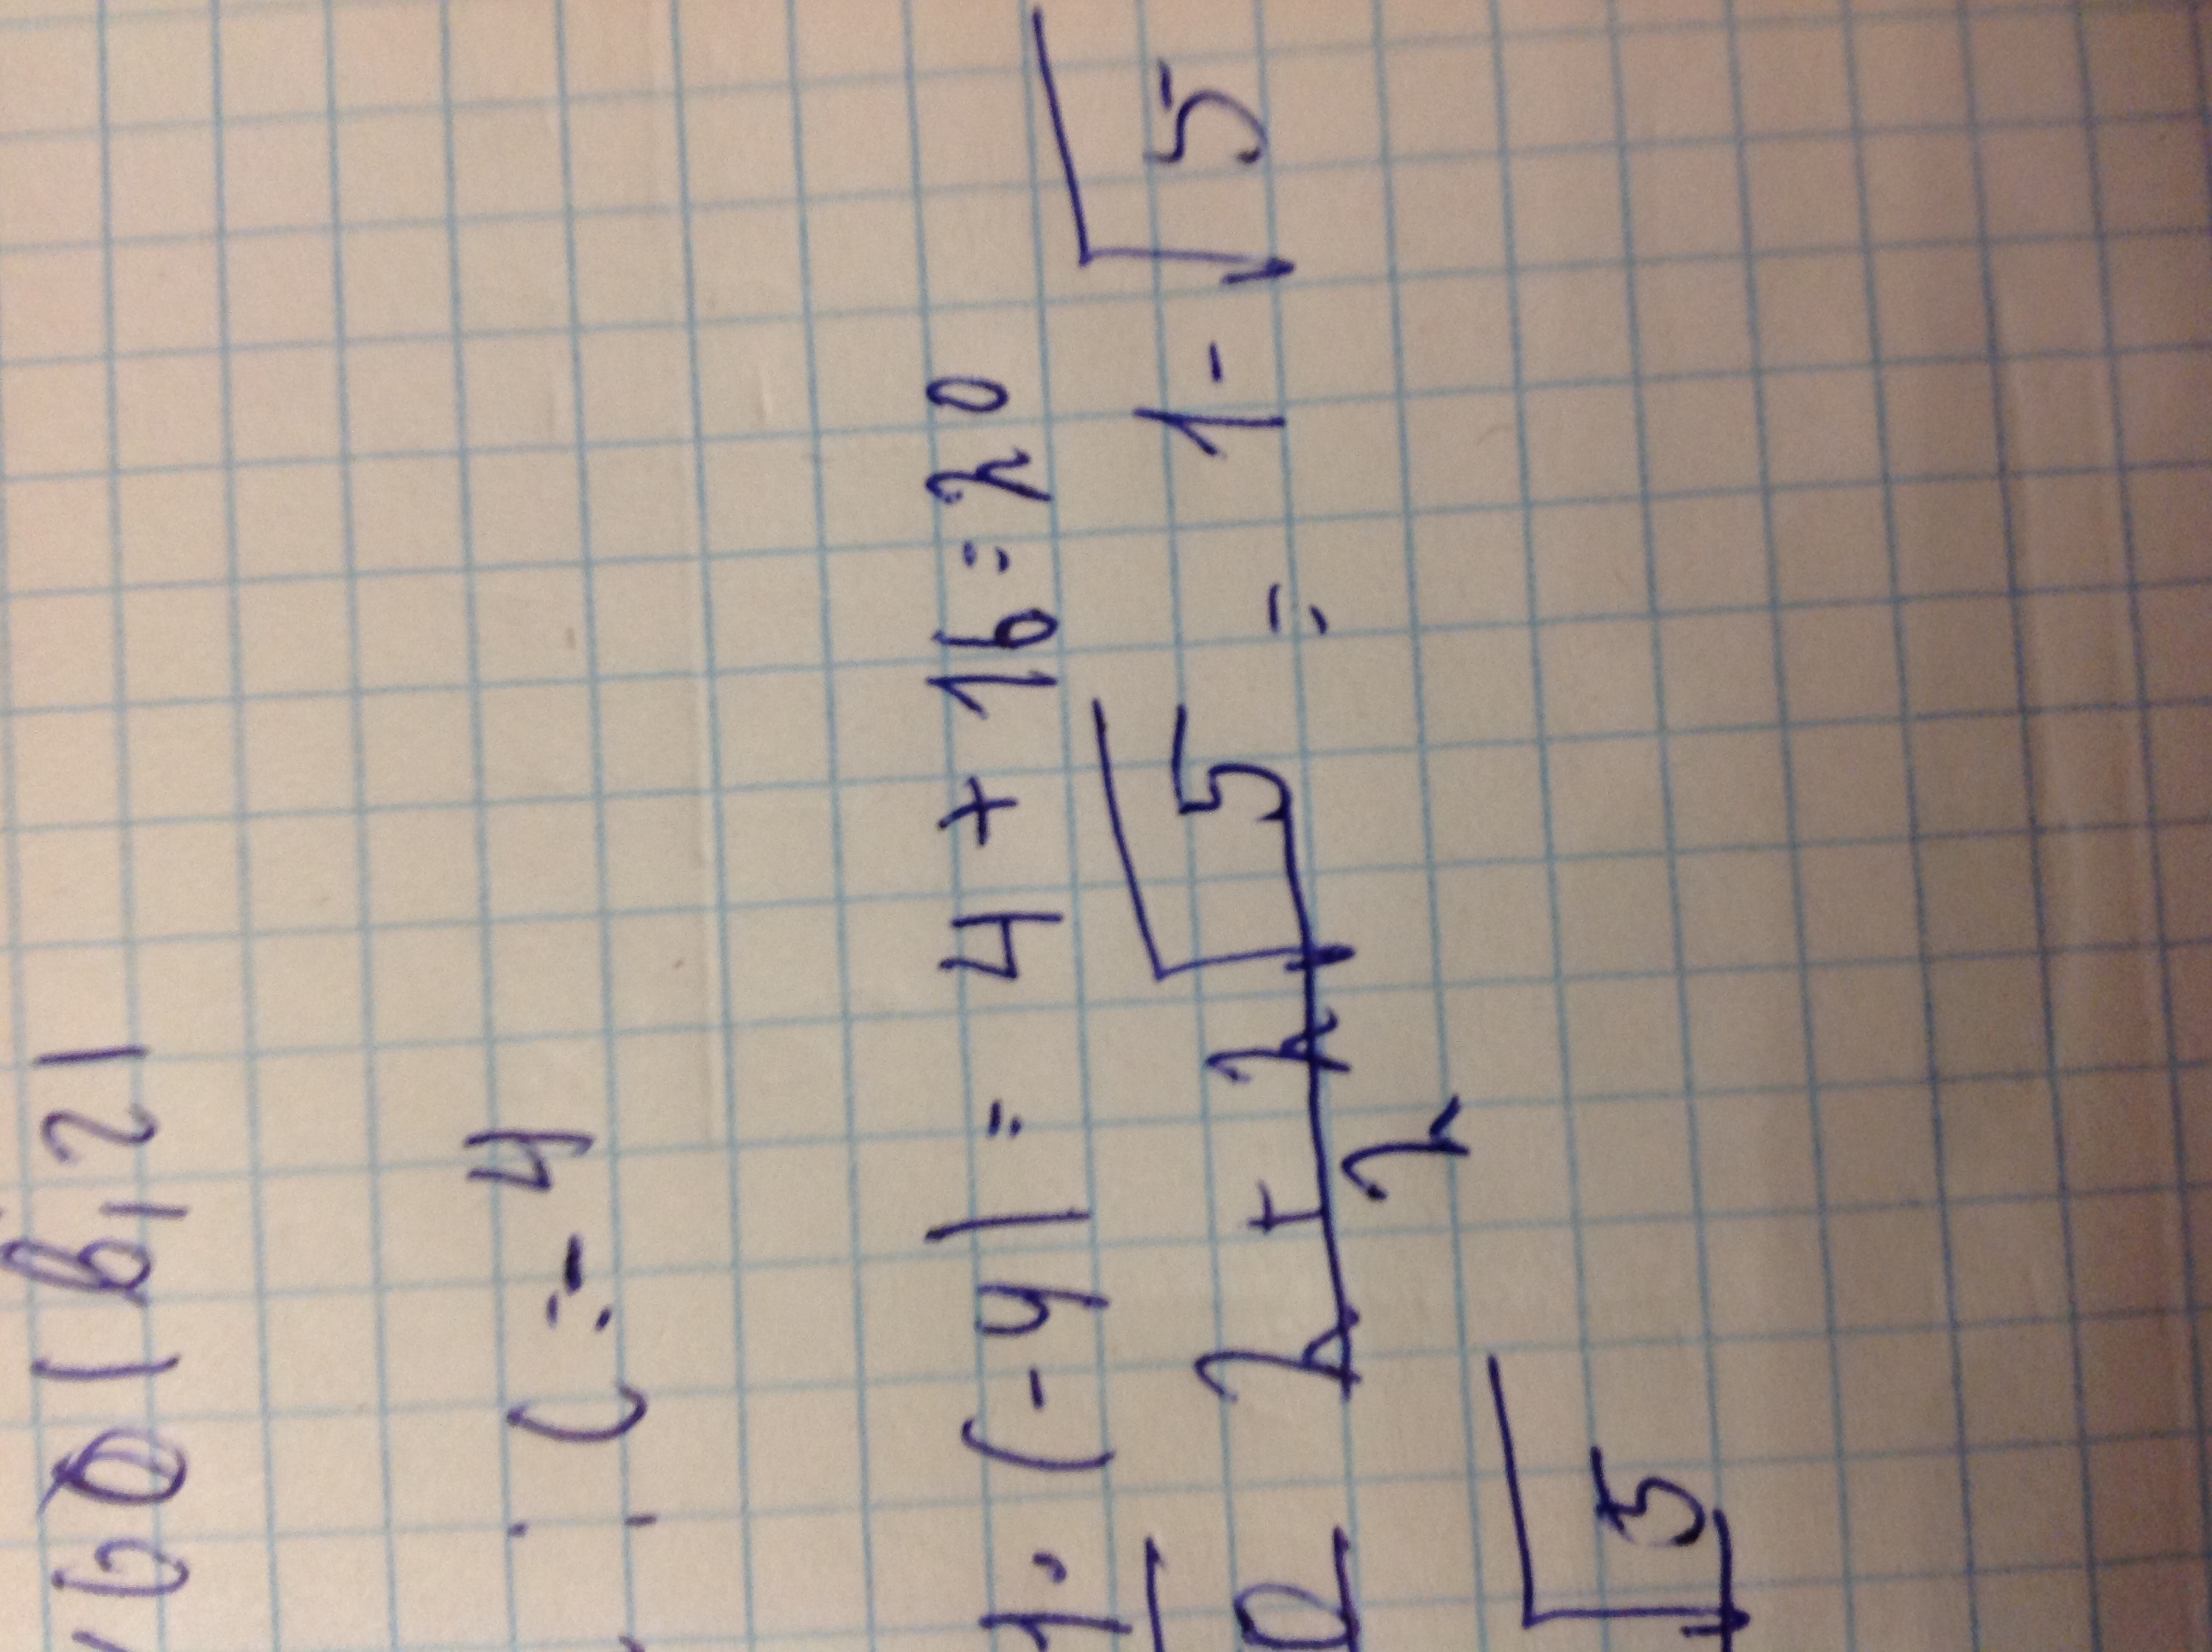 60(6,2)
; c=-4
1·(-4)= 4+16=20
2+2√5 = 1-√5
2
√5